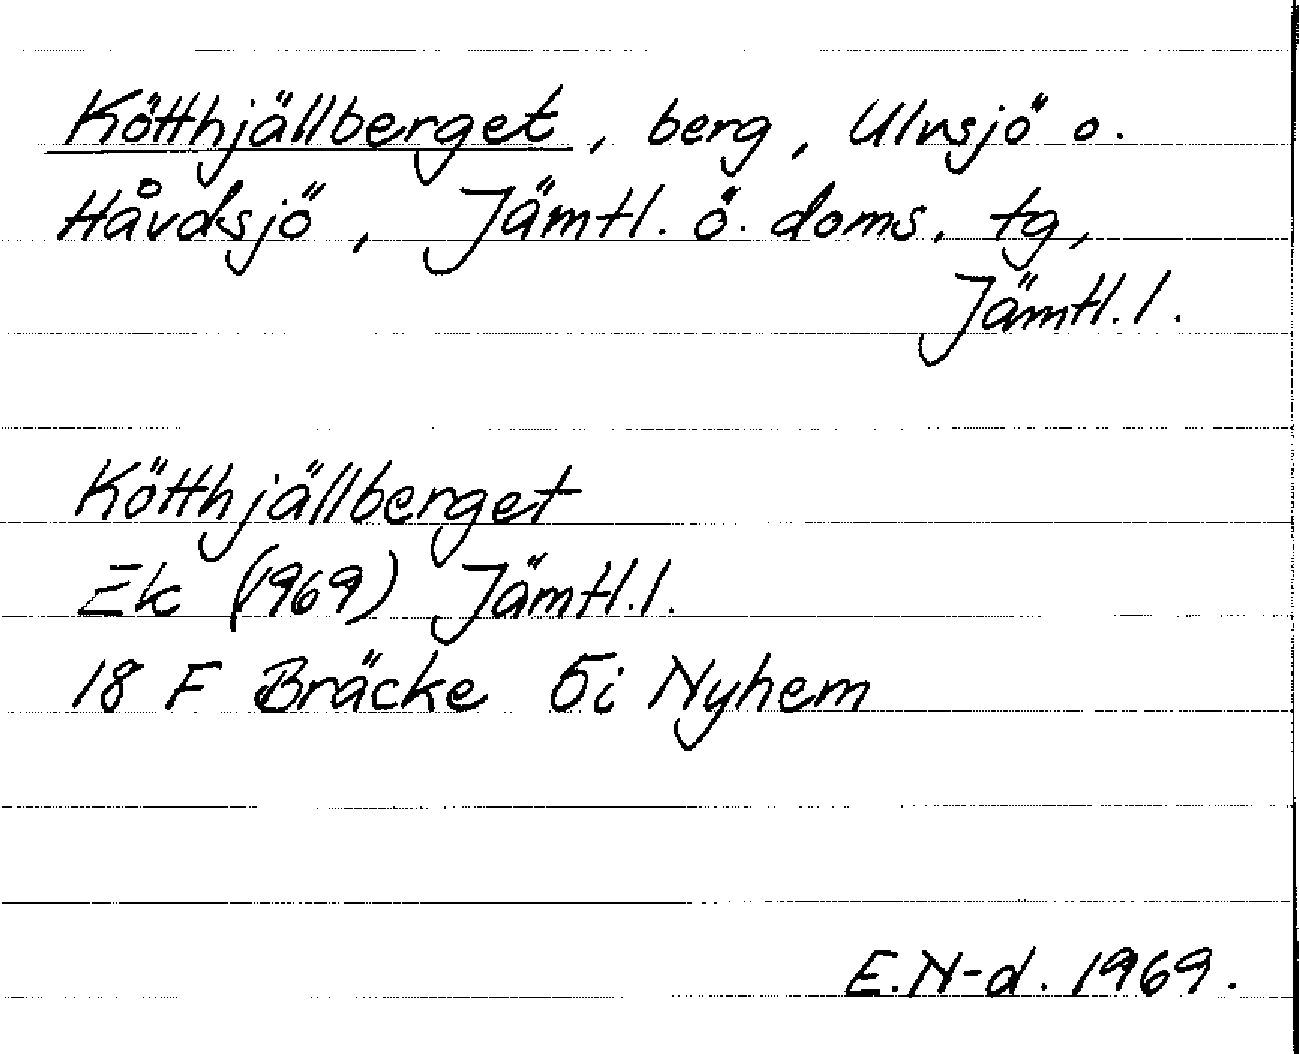 Kötthjällberget, berg, Ulvsjö o.
Håvdsjö, Jämtl. ö. doms. tg,
Jämtl. l.
Kötthjällberget
Ek (1969) Jämtl. l.
18 F Bräcke 5i Nyhem
E.N-d. 1969.